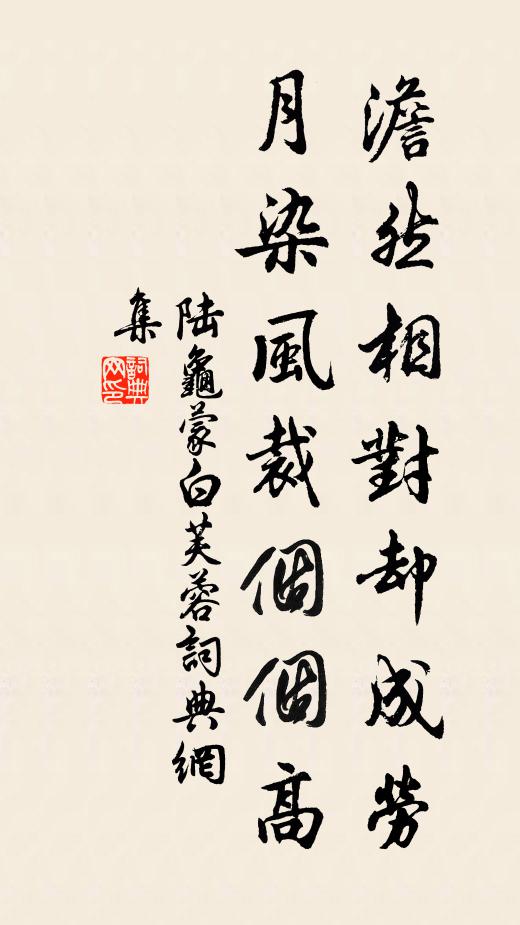 澹然相對却成勞
月染風裁個個高
陸龜蒙白芙蓉詞典網
集
詞典網印